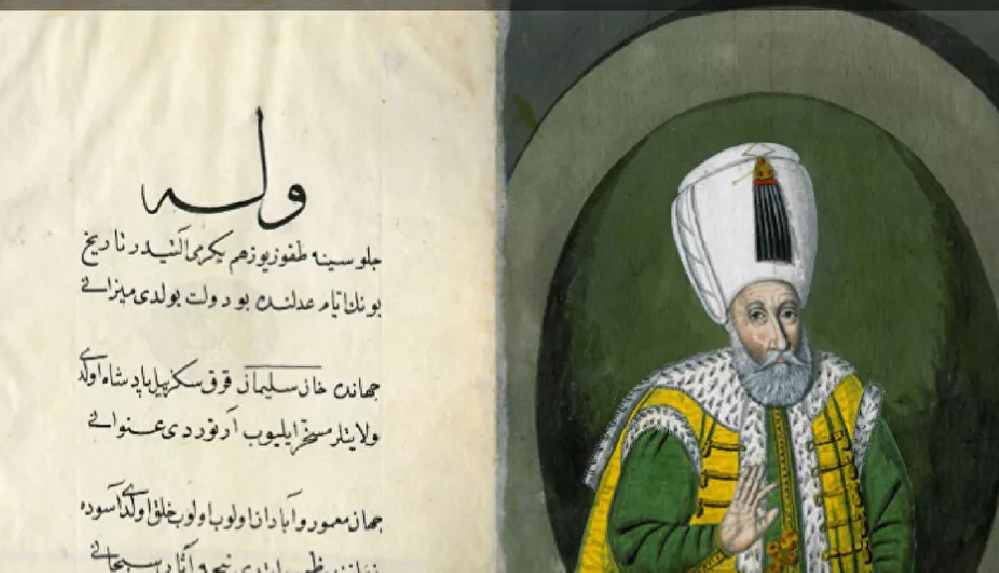 وله
جلوسينه طقوز يوز هم يكرمى التيدر تاريخ
بونك ايام عدلنده بو دولت بولدى ميزانى
جهانده خان سليمان قرق سكز ييل پادشاه اولدى
ولايتلر مسخر ايليوب آرتوردى عنوانى
جهان معمور و آبادان اولوب اولوب خلق اولدى آسوده